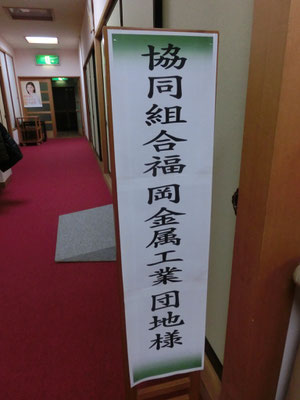 協同組合福岡金属工業団地様